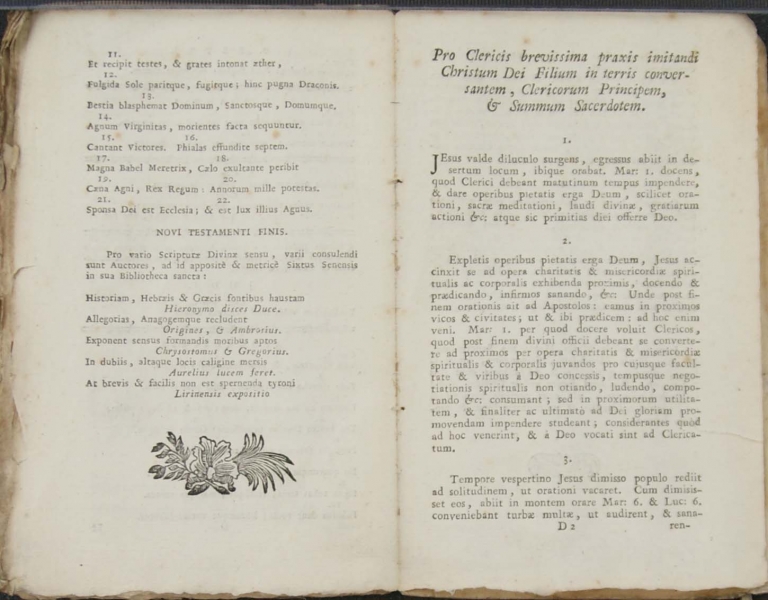 11.
Et recipit testes, & grates intonat æther,
12.
Fulgida Sole paritque, fugitque; hinc pugna Draconis.
13.
Bestia blasphemat Dominum, Sanctosque, Domumque.
14.
Agnum Virginitas, morientes facta sequuntur.
15. 16.
Cantant Victores. Phialas effundite septem.
17. 18.
Magna Babel Meretrix, Cælo exultante peribit
19. 20.
Cæna Agni, Rex Regum: Annorum mille potestas.
21. 22.
Sponsa Dei est Ecclesia; & est lux illius Agnus.
NOVI TESTAMENTI FINIS.
Pro vario Scripturæ Divinæ sensu, varii consulendi
sunt Auctores, ad id appositè & metricè Sixtus Senensis
in sua Bibliotheca sancta:
Historiam, Hebræis & Græcis fontibus haustam
Hieronymo disces Duce.
Allegorias, Anagogemque recludent
Origines, & Ambrosius.
Exponent sensus formandis moribus aptos
Chrysostomus & Gregorius.
In dubiis, altaque locis caligine mersis
Aurelius lucem feret.
At brevis & facilis non est spernenda tyroni
Lirinensis expositio
Pro Clericis brevissima praxis imitandi
Christum Dei Filium in terris conver-
santem, Clericorum Principem,
& Summum Sacerdotem.
1.
JEsus valde diluculo surgens, egressus abiit in de-
sertum locum, ibique orabat. Mar: 1. docens,
quod Clerici debeant matutinum tempus impendere,
& dare operibus pietatis erga Deum, scilicet ora-
tioni, sacræ meditationi, laudi divinæ, gratiarum
actioni &c: atque sic primitias diei offerre Deo.
2.
Expletis operibus pietatis erga Deum, Jesus ac-
cinxit se ad opera charitatis & misericordiæ spiri-
tualis ac corporalis exhibenda proximis, docendo &
prædicando, infirmos sanando, &c: Unde post fi-
nem orationis ait ad Apostolos: eamus in proximos
vicos & civitates; ut & ibi prædicem: ad hoc enim
veni. Mar: 1. per quod docere voluit Clericos,
quod post finem divini officii debeant se converte-
re ad proximos per opera charitatis & misericordiæ
spiritualis & corporalis juvandos pro cujusque facul-
tate & viribus á Deo concessis, tempusque nego-
tiationis spiritualis non otiando, ludendo, compo-
tando &c: consumant; sed in proximorum utilita-
tem, & finaliter ac ultimatò ad Dei gloriam pro-
movendam impendere studeant; considerantes quod
ad hoc venerint, & á Deo vocati sint ad Clerica-
tum.
3.
Tempore vespertino Jesus dimisso populo rediit
ad solitudinem, ut orationi vacaret. Cum dimisis-
set eos, abiit in montem orare Mar: 6. & Luc: 6.
conveniebant turbæ multæ, ut audirent, & sana-
D 2 ren-